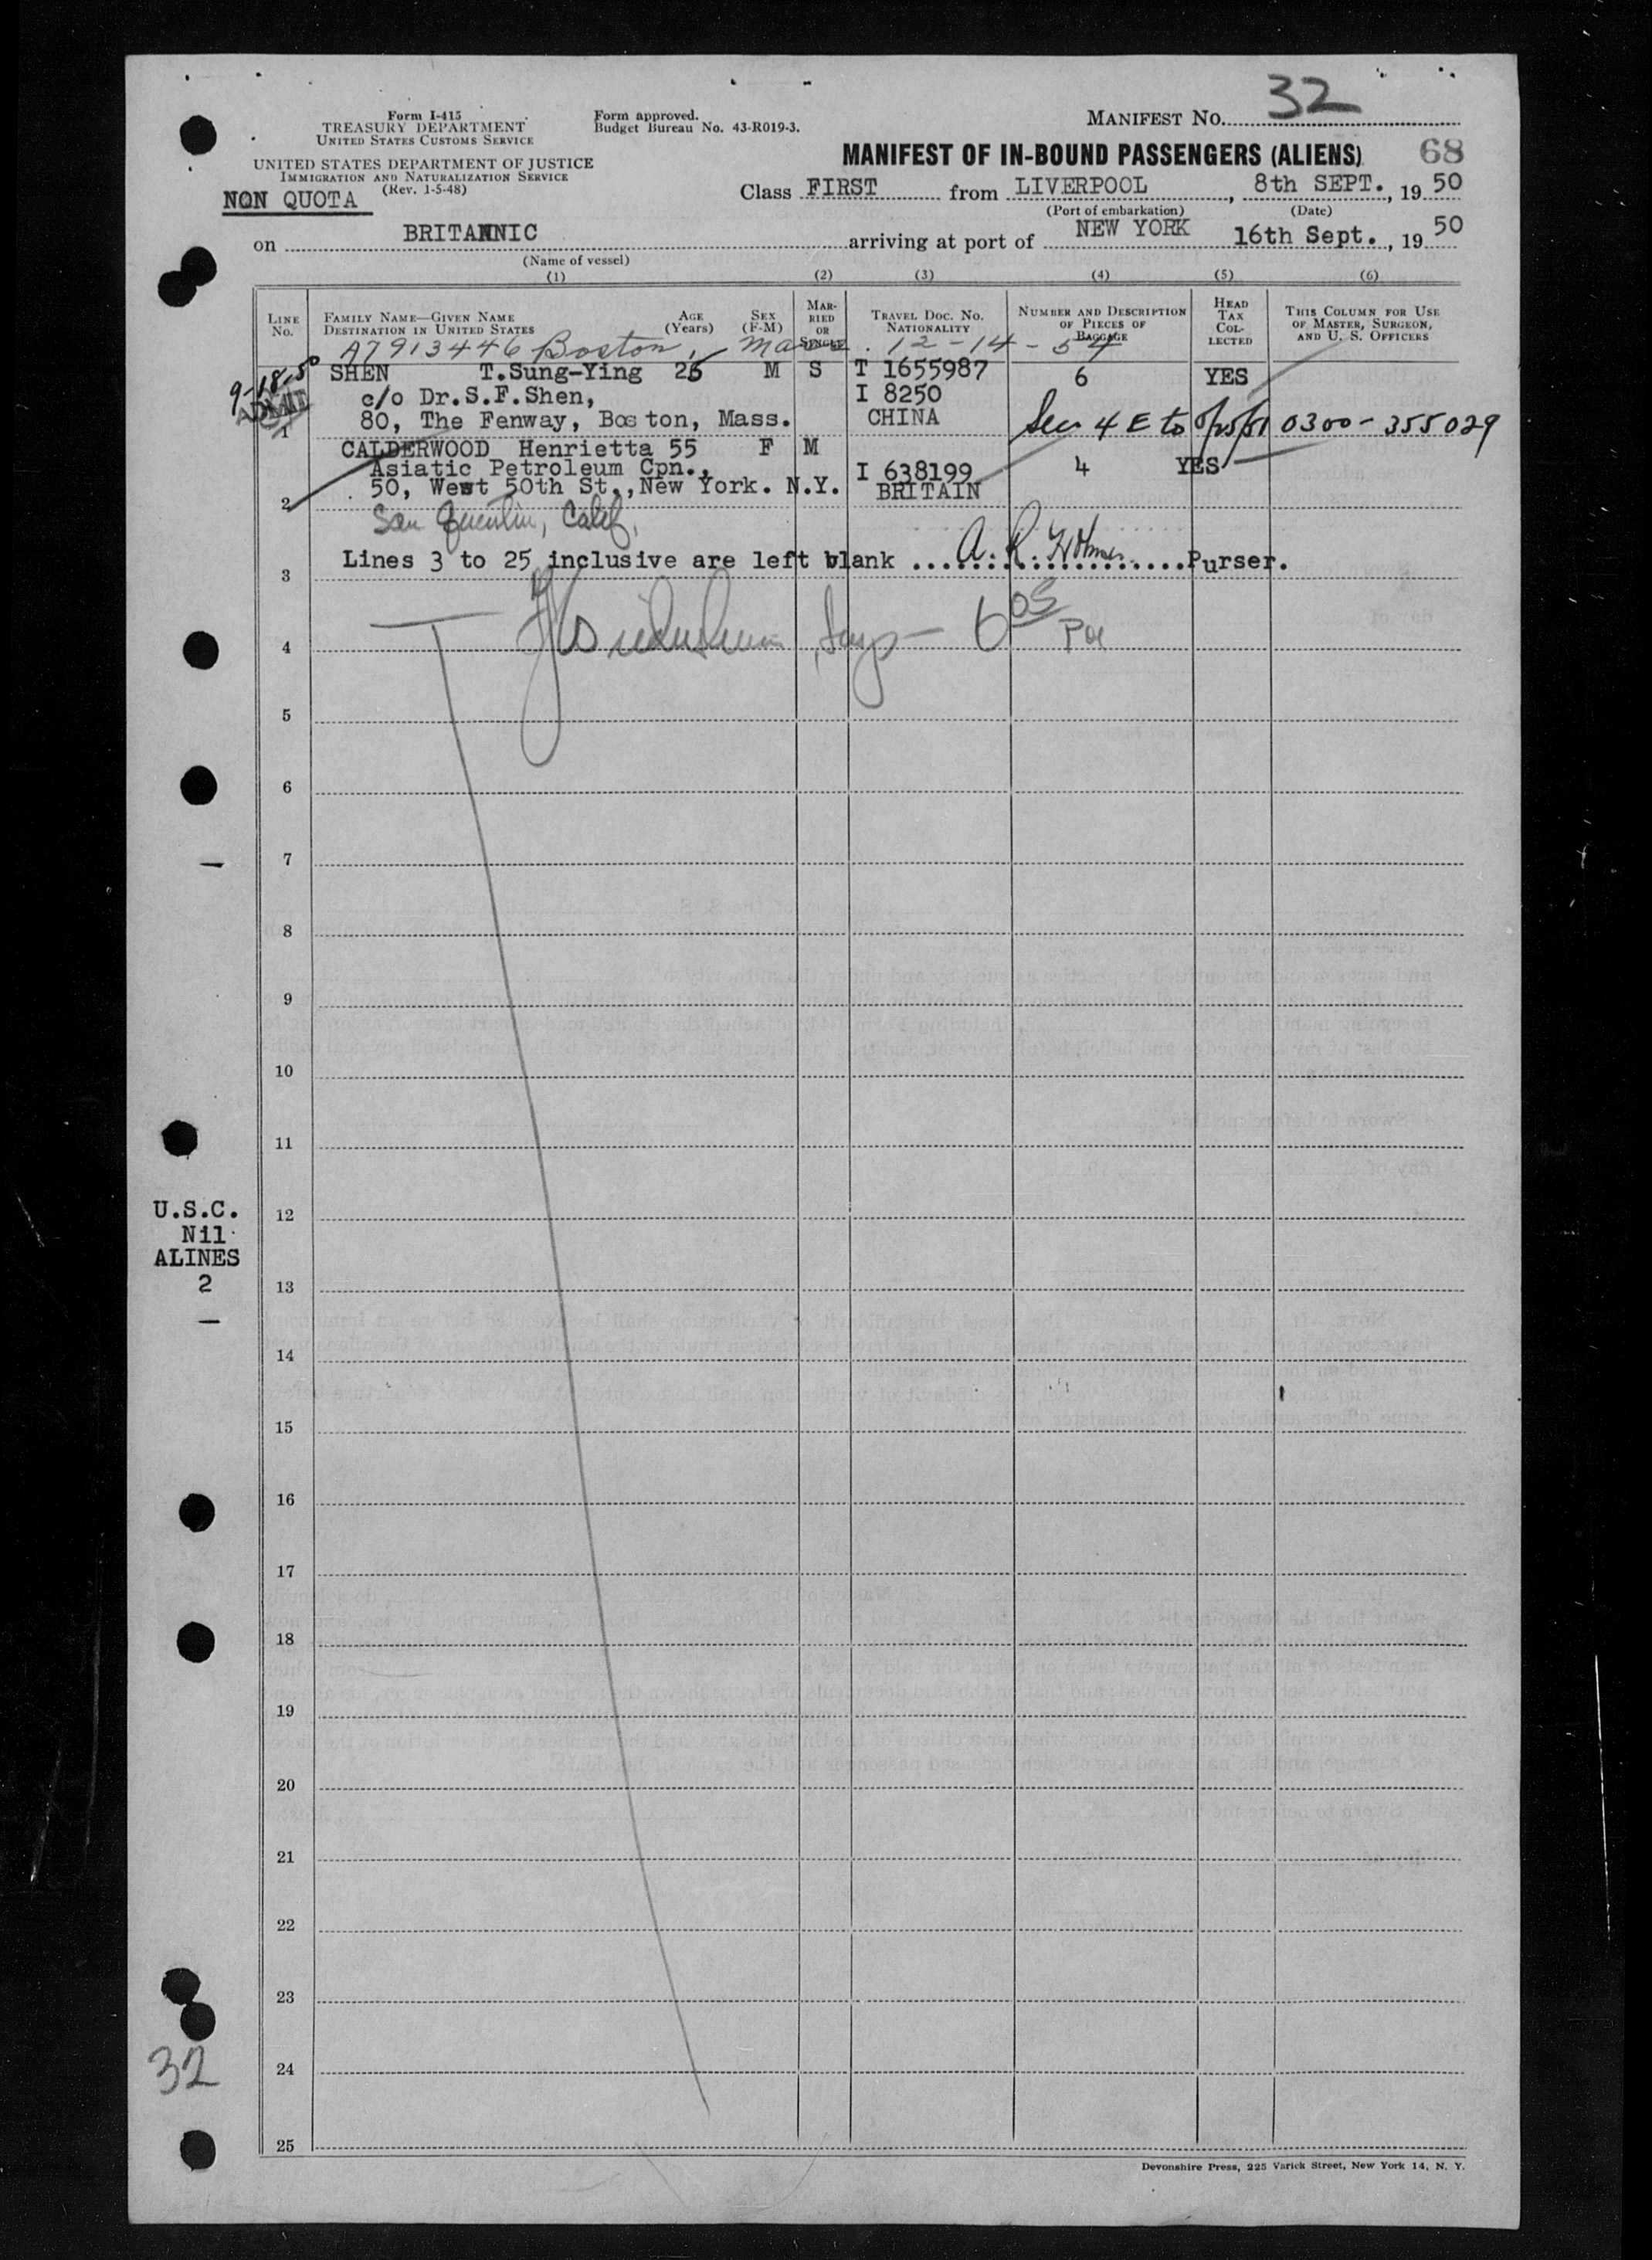 32
Form I-415
TREASURY DEPARTMENT
UNITED STATES CUSTOMS SERVICE
Form approved.
Budget Bureau No. 43-R019-3.
MANIFEST NO.
UNITED STATES DEPARTMENT OF JUSTICE
IMMIGRATION AND NATURALIZATION SERVICE
(Rev. 1-5-48)
MANIFEST OF IN-BOUND PASSENGERS (ALIENS) 68
NON QUOTA
Class FIRST from LIVERPOOL, 8th SEPT., 19 50
(Port of embarkation) (Date)
on BRITANNIC arriving at port of NEW YORK 16th Sept., 19 50
(Name of vessel)
(1) (2) (3) (4) (5) (6)
LINE No.
FAMILY NAME—GIVEN NAME
DESTINATION IN UNITED STATES
AGE (Years)
SEX (F-M)
MARRIED OR SINGLE
TRAVEL DOC. NO.
NATIONALITY
NUMBER AND DESCRIPTION OF PIECES OF BAGGAGE
HEAD TAX COLLECTED
THIS COLUMN FOR USE OF MASTER, SURGEON, AND U. S. OFFICERS
A7913446 Boston, Mass. 12-14-54
9-18-50
ADMIT
SHEN T.Sung-Ying 26 M S T 1655987 6 YES
c/o Dr.S.F.Shen, I 8250
1 80, The Fenway, Boston, Mass. CHINA
Sec 4 E to 0300-355029
CALDERWOOD Henrietta 55 F M
Asiatic Petroleum Cpn., I 638199 4 YES
2 50, West 50th St.,New York. N.Y. BRITAIN
San Quentin, Calif.
3 Lines 3 to 25 inclusive are left blank ....................Purser.
4
Insp - 6 05
5
6
7
8
9
10
11
12
13
14
15
16
17
18
19
20
21
22
23
24
25
U.S.C.
Nil
ALINES
2
32
Devonshire Press, 225 Varick Street, New York 14, N. Y.